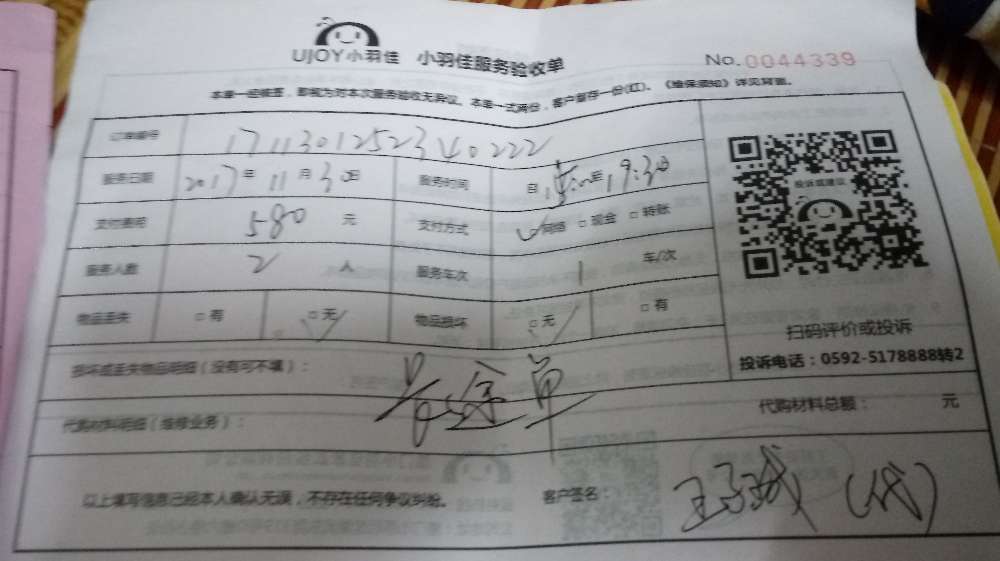 UJOY小羽佳 小羽佳服务验收单 No.0044339
本单一经确签，即视为对本次服务验收无异议。本单一式两份，客户留存一份(红)。《维保须知》详见背面。
订单编号 17113012523440222
服务日期 2017年11月30日 服务时间 自 至19:30
支付费用 580 元 支付方式 ✓网络 □现金 □转账
服务人数 2 人 服务车次 1 车/次
物品丢失 □有 □无✓ 物品损坏 □无✓ □有
投诉或建议
扫码评价或投诉
投诉电话：0592-5178888转2
损坏或丢失物品明细（没有可不填）：
单
代购材料明细（维修业务）： 代购材料总额： 元
以上填写信息已经本人确认无误，不存在任何争议纠纷。 客户签名： (代)